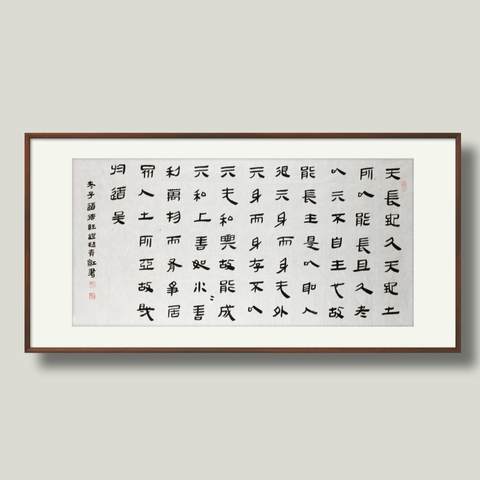 天長地久天地之
所以能長且久者
以其不自生也故
能長生是以聖人
後其身而身先外
其身而身存不以
其无私與故能成
其私上善如水〻善
利萬物而有爭居
衆人之所亞故幾
於道矣
老子道德經
書